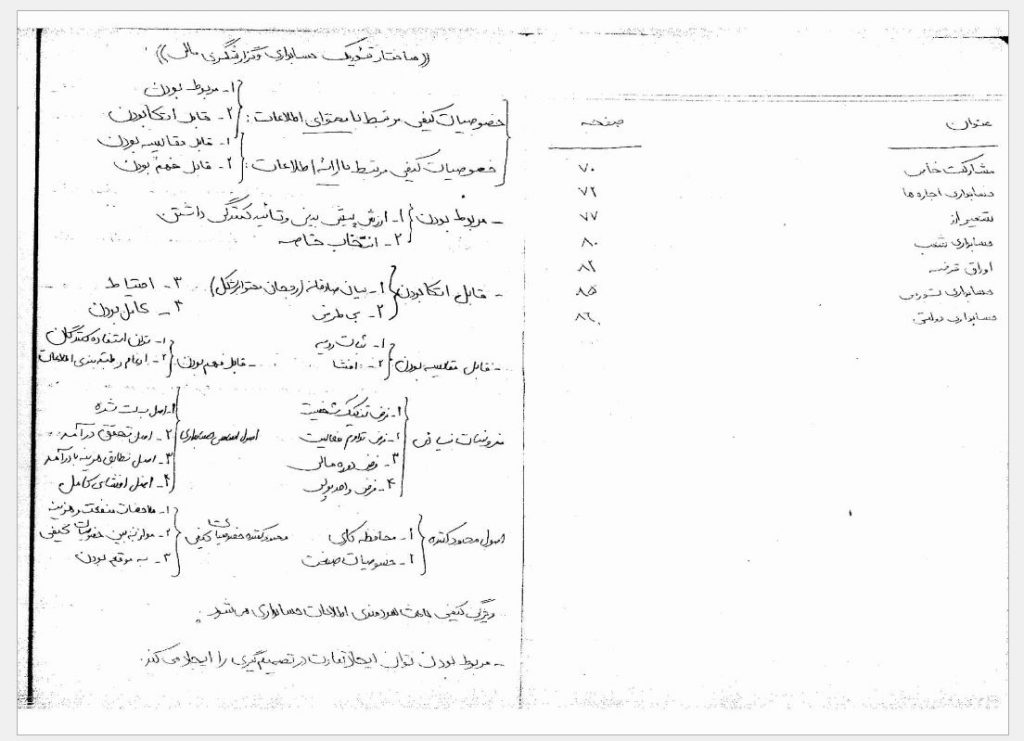 عنوان صفحه
مشارکت خاص ۷۰
حسابداری اجاره ها ۷۲
تسعیر ارز ۷۷
حسابداری شعب ۸۰
اوراق قرضه ۸۲
حسابداری تورمی ۸۵
حسابداری دولتی ۸۶
((ساختار تئوریک حسابداری و گزارشگری مالی))
خصوصیات کیفی مرتبط با محتوای اطلاعات :
۱- مربوط بودن
۲- قابل اتکا بودن
خصوصیات کیفی مرتبط با ارائه اطلاعات :
۱- قابل مقایسه بودن
۲- قابل فهم بودن
- مربوط بودن
۱- ارزش پیش بینی و تائید کنندگی داشتن
۲- انتخاب خاصه
- قابل اتکا بودن
۱- بیان صادقانه (رجحان محتوا بر شکل)
۲- بی طرفی
۳- احتیاط
۴- کامل بودن
- قابل مقایسه بودن
۱- ثبات رویه
۲- افشا
- قابل فهم بودن
۱- توان استفاده کنندگان
۲- ادغام و طبقه بندی اطلاعات
مفروضات بنیادی
۱- فرض تفکیک شخصیت
۲- فرض تداوم فعالیت
۳- فرض دوره مالی
۴- فرض واحد پولی
اصول حسابداری
۱- اصل بهای تمام شده
۲- اصل تحقق درآمد
۳- اصل تطابق هزینه با درآمد
۴- اصل افشای کامل
اصول محدود کننده
۱- محافظه کاری
۲- خصوصیات صنعت
محدود کننده خصوصیات کیفی
۱- ملاحظات منفعت و هزینه
۲- موازنه بین خصوصیات کیفی
۳- به موقع بودن
ویژگی کیفی باعث سودمندی اطلاعات حسابداری می شود .
- مربوط بودن توان ایجاد تفاوت در تصمیم گیری را ایجاد می کند .